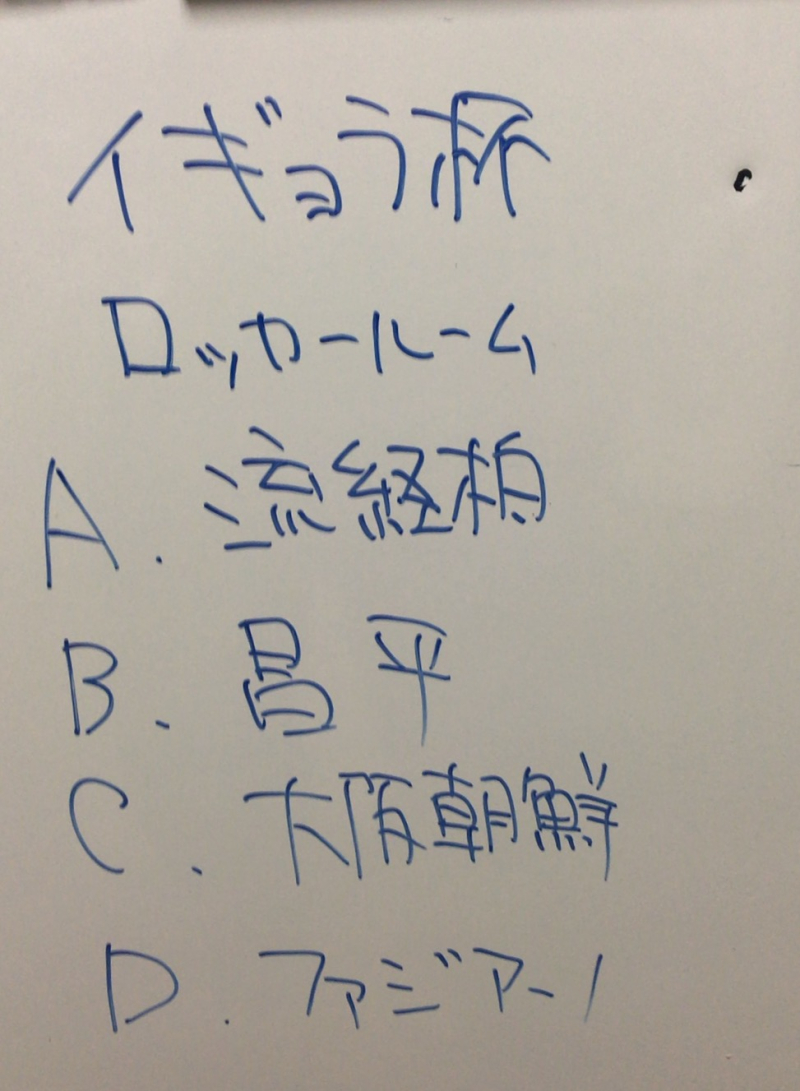 イギョラ杯
ロッカールーム
A. 流経柏
B. 昌平
C. 大阪朝鮮
D. ファジアーノ